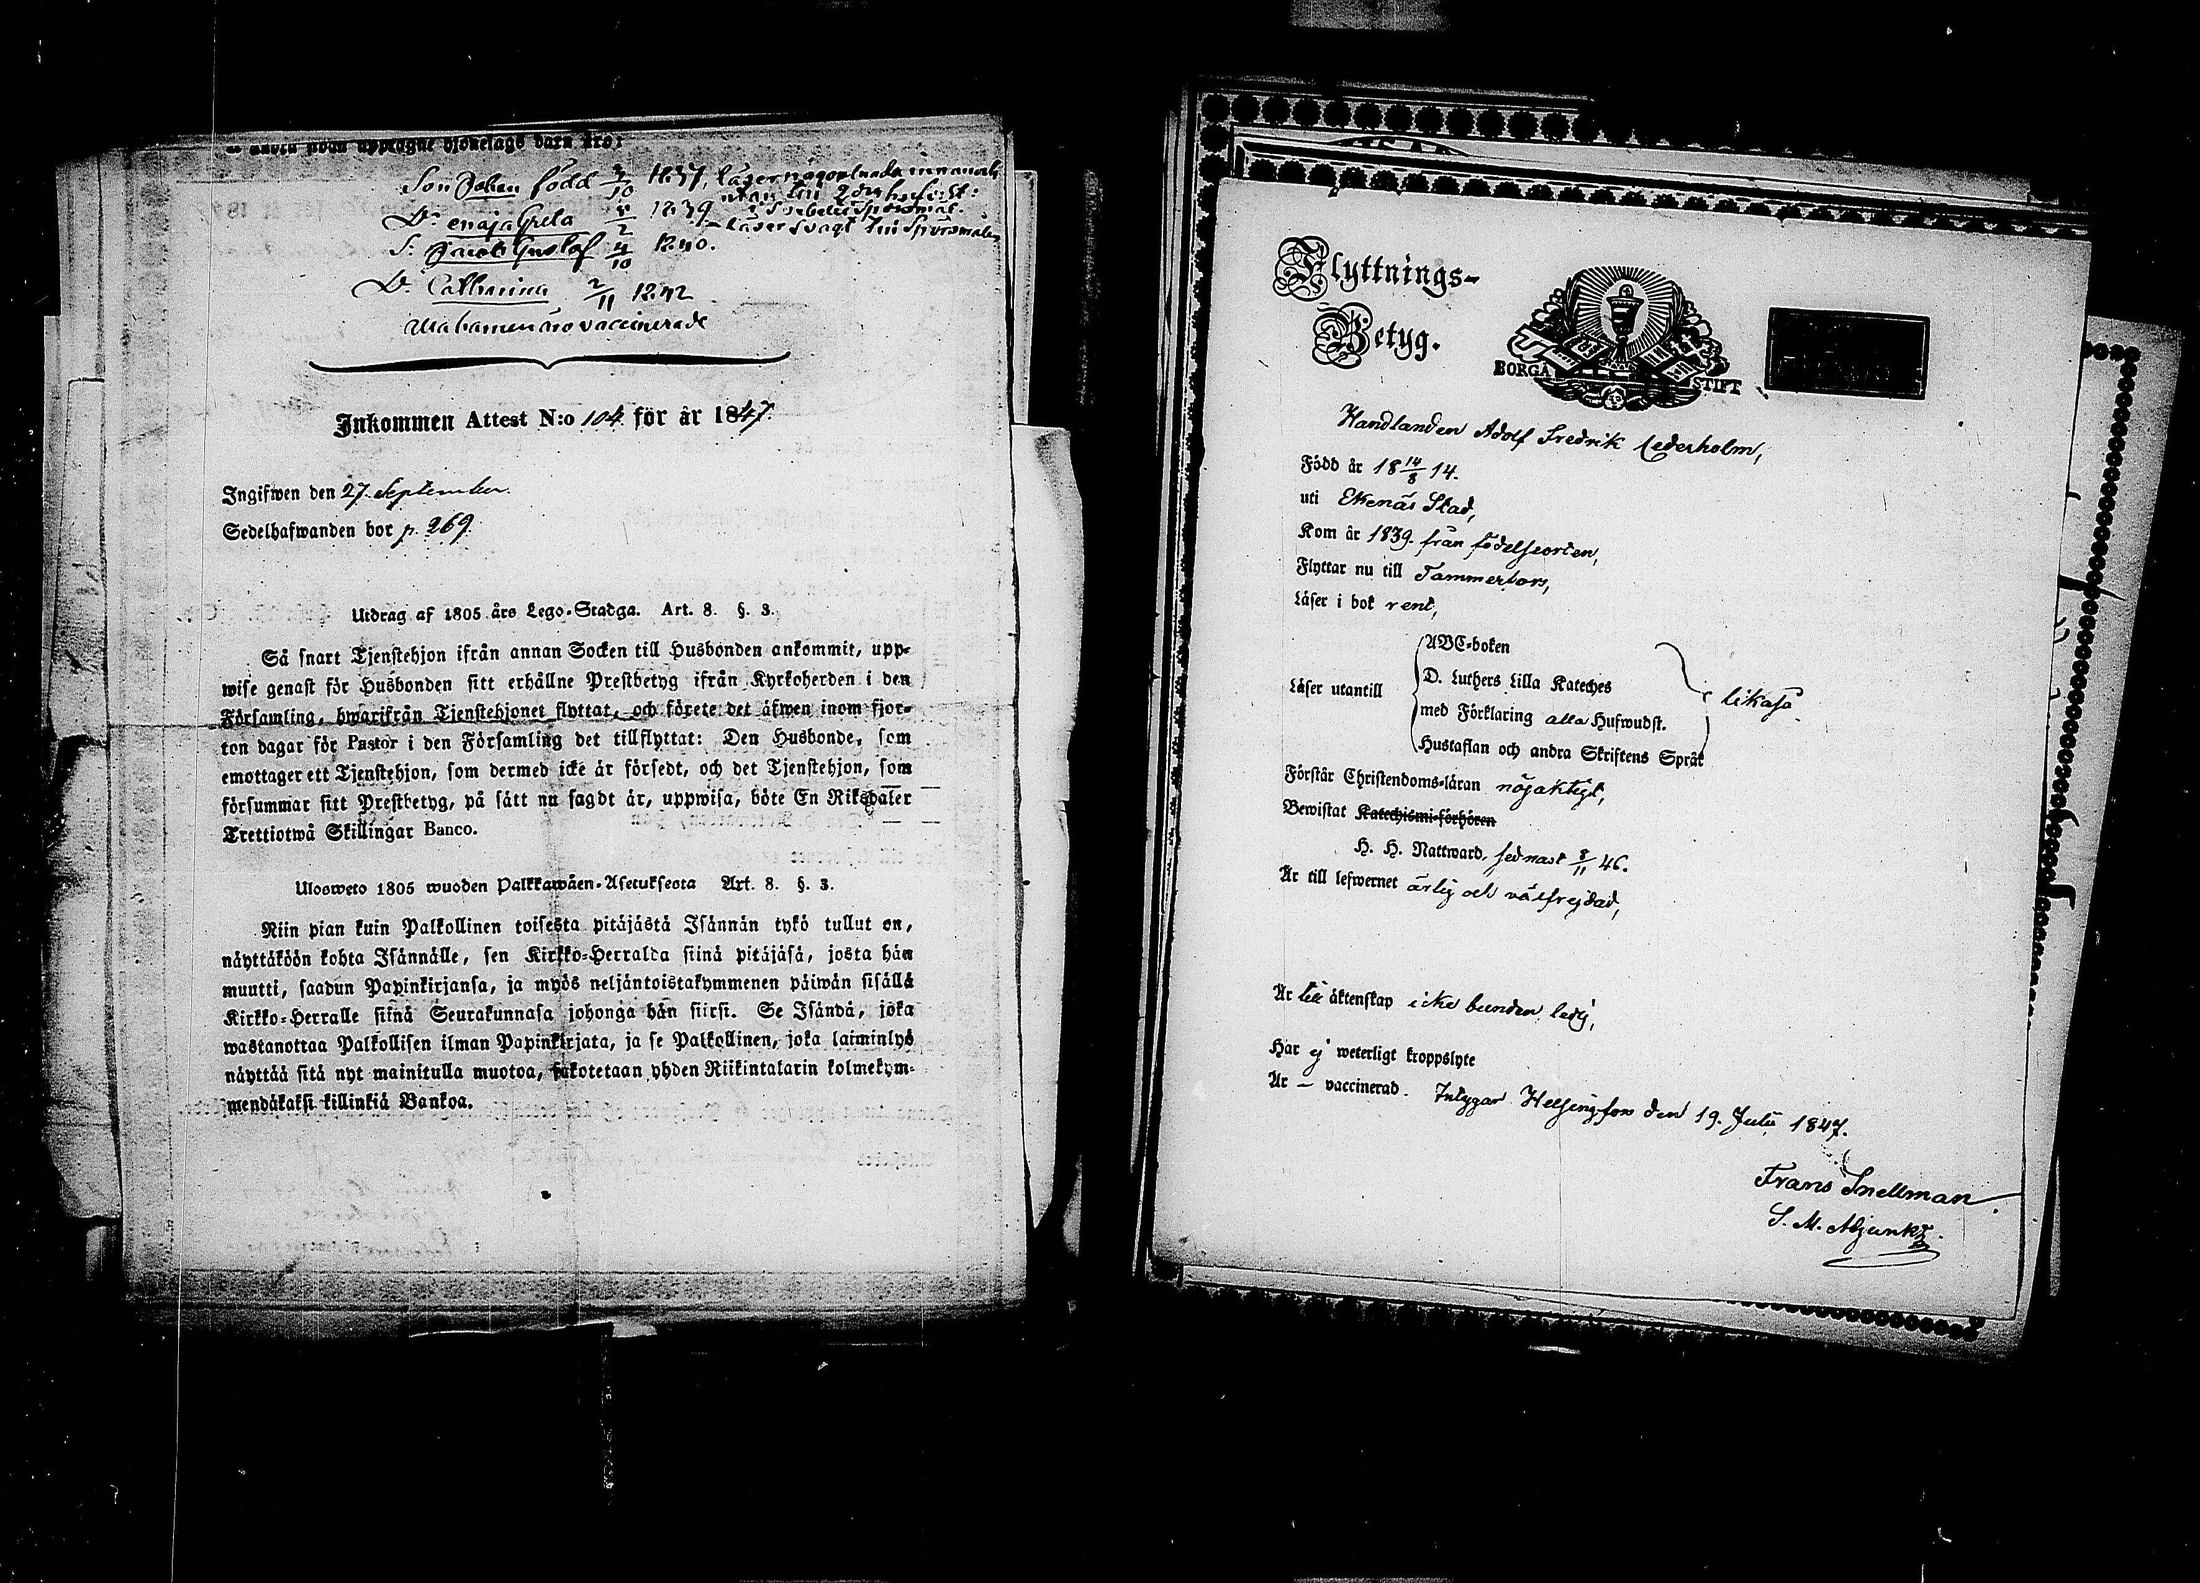 Son Johan född 3/10 1837, läser någorlunda innantill
D:r Maja Greta 5/2 1839
S: Jacob Gustaf 4/10 1840.
D:r Catharina 2/11 1842
Alla barnen äro vaccinerade
Inkommen Attest N:o 104 för år 1847.
Ingifwen den 27. September.
Sedelhafwanden bor p. 269.
Utdrag af 1805 års Lego-Stadga. Art. 8. §. 3.
Så snart Tjenstehjon ifrån annan Socken till Husbonden ankommit, upp-
wise genast för Husbonden sitt erhållne Prestbetyg ifrån Kyrkoherden i den
Församling, hwarifrån Tjenstehjonet flyttat, och förete det äfwen inom fjor-
ton dagar för Pastor i den Församling det tillflyttat: Den Husbonde, som
emottager ett Tjenstehjon, som dermed icke är försedt, och det Tjenstehjon, som
försummar sitt Prestbetyg, på sätt nu sagdt är, uppwisa, böte En Riksdaler
Trettiotwå Skillingar Banco.
Ulosweto 1805 wuoden Palkkawäen-Asetuksesta Art. 8. §. 3.
Niin pian kuin Palkollinen toisesta pitäjästä Isännän tykö tullut on,
näyttäköön kohta Isännälle, sen Kirkko-Herralda siinä pitäjäsä, josta hän
muutti, saadun Papinkirjansa, ja myös neljäntoistakymmenen päiwän sisällä
Kirkko-Herralle siinä Seurakunnasa johonga hän siirsi. Se Isändä, joka
wastanottaa Palkollisen ilman Papinkirjata, ja se Palkollinen, joka laiminlyö
näyttää sitä nyt mainitulla muotoa, sakotetaan yhden Riikintalarin kolmekym-
mendäkaksi killinkiä Bankoa.
Flyttnings-
Betyg.
BORGÅ STIFT
Handlanden Adolf Fredrik Cederholm,
Född år 18 14/8 14.
uti Ekenäs Stad,
Kom år 1839. från födelseorten,
Flyttar nu till Tammerfors,
Läser i bok rent,
ABC-boken
D. Luthers Lilla Kateches
Läser utantill
med Förklaring alla Hufwudst.
likaså
Hustaflan och andra Skriftens Språk
Förstår Christendoms-läran nöjaktigt,
Bewistat Katechismi-förhören
H. H. Nattward, sednast 8/11 46.
Är till lefwernet ärlig och välfrejdad,
Är till äktenskap icke bunden ledig,
Har ej weterligt kroppslyte
Är — vaccinerad. Intygar Helsingfors den 19. Julii 1847.
Frans Snellman
S. M. Adjunkt.